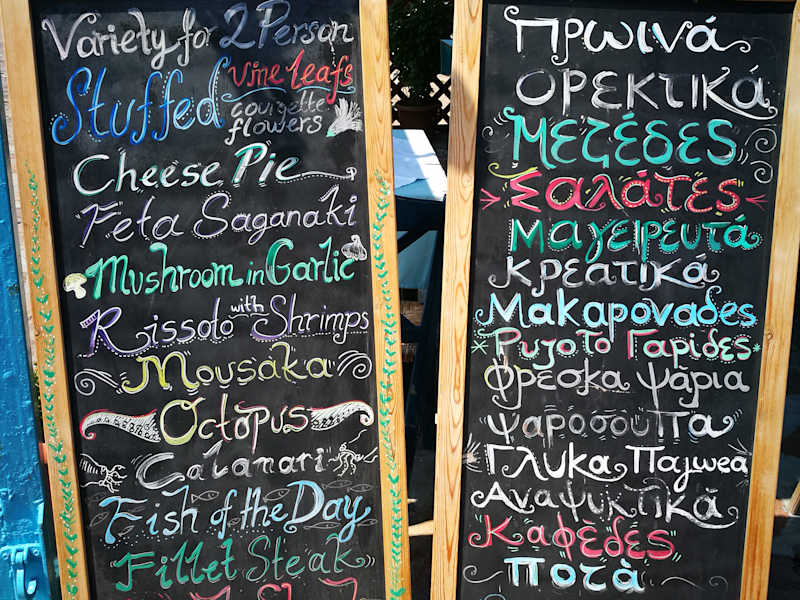 Variety for 2 Person
Stuffed vine leafs
courgette
flowers
Cheese Pie
Feta Saganaki
Mushroom in Garlic
Rissoto with Shrimps
Mousaka
Octopus
Calamari
Fish of the Day
Fillet Steak
Πρωινά
Ορεκτικά
Μεζέδες
Σαλάτες
Μαγειρευτά
Κρεατικά
Μακαρονάδες
Ρυζότο Γαρίδες
Φρέσκα Ψάρια
Ψαρόσουπα
Γλυκα Παγωτά
Αναψυκτικά
Καφέδες
Ποτά